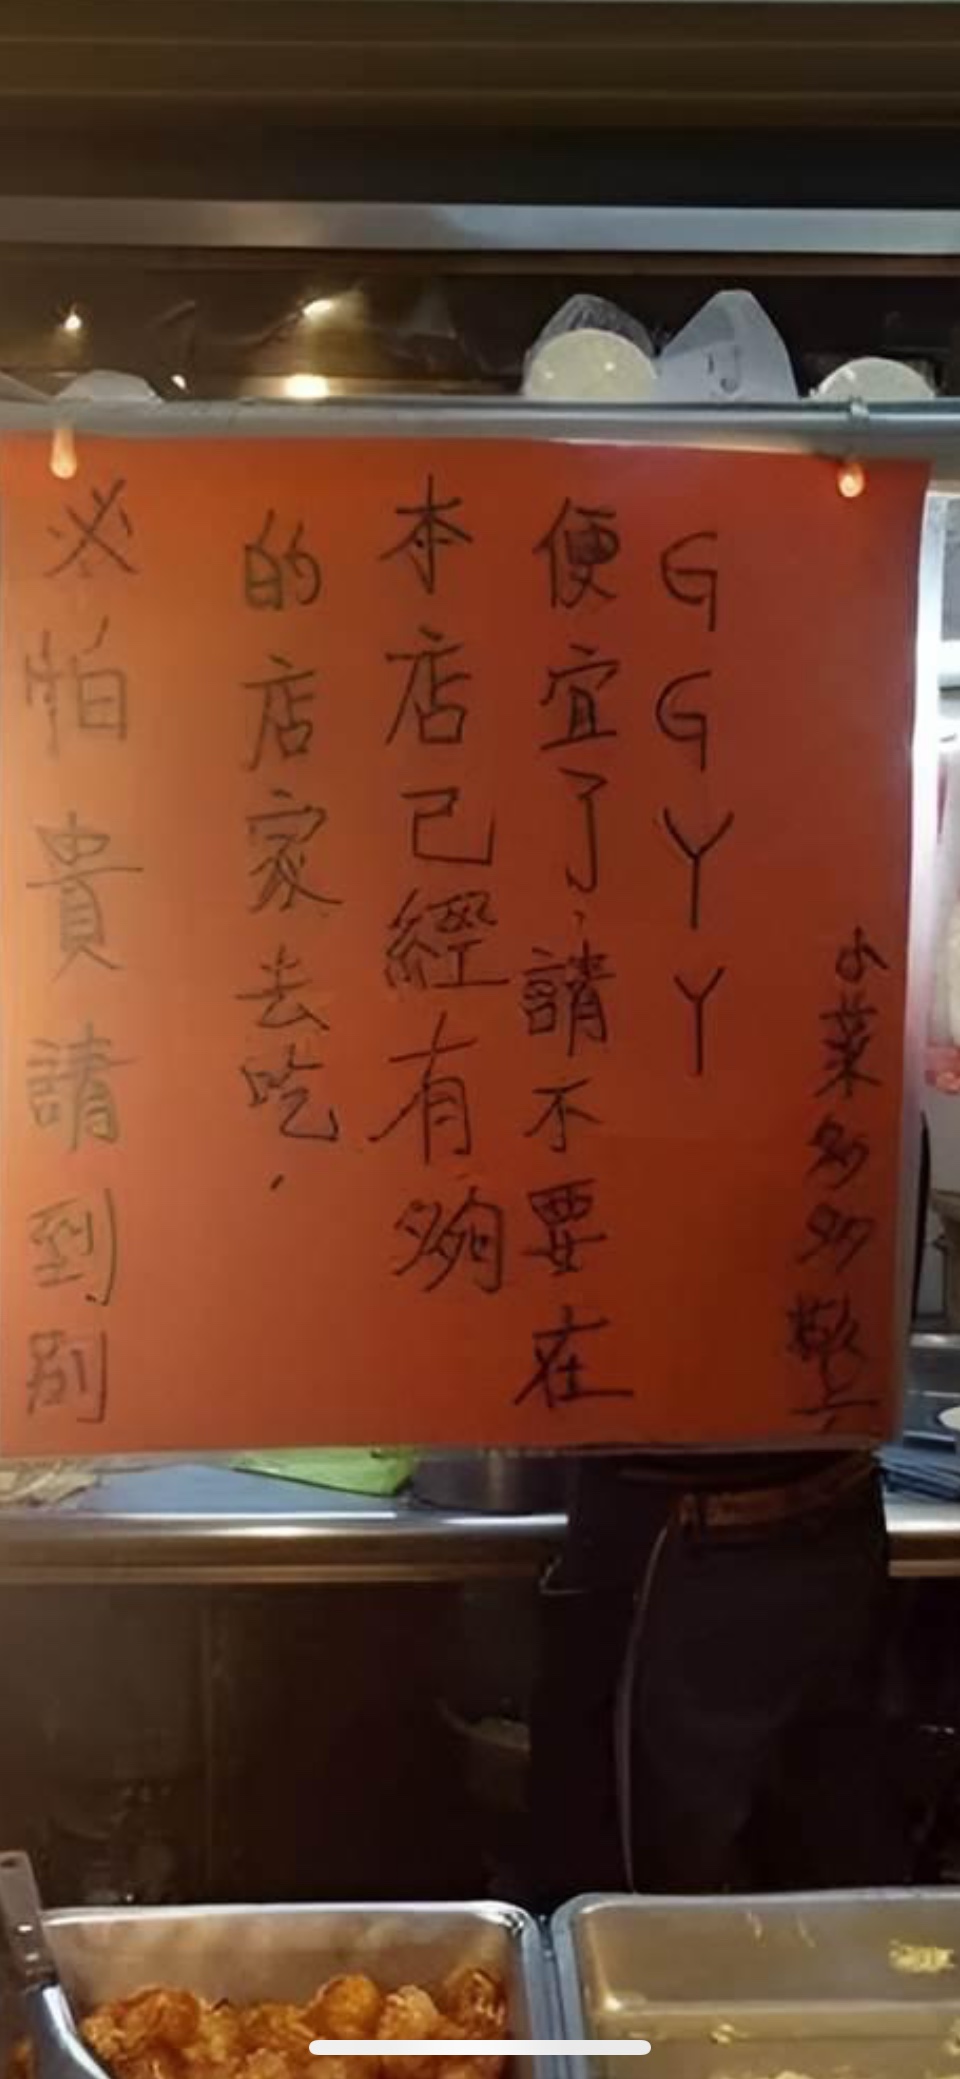 ※怕貴請到別
的店家去吃.
本店已經有夠
便宜了,請不要在
GGYY
小菜多多敬上